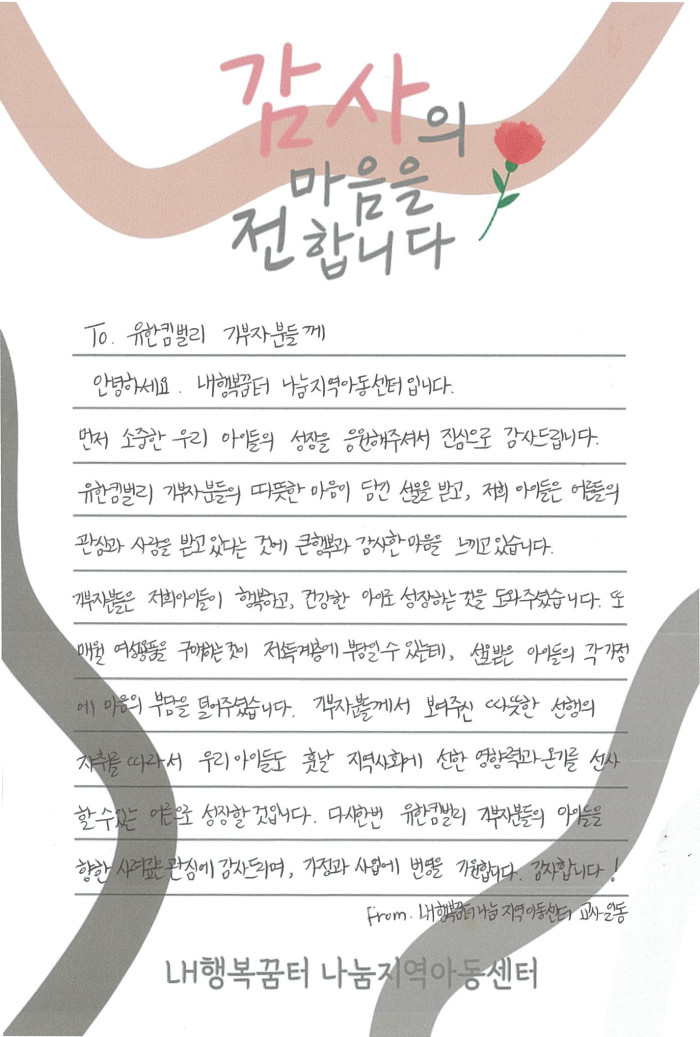 감사의
마음을
전합니다
To. 유한킴벌리 기부자분들께
안녕하세요. 내행복꿈터 나눔지역아동센터입니다.
먼저 소중한 우리 아이들의 성장을 응원해주셔서 진심으로 감사드립니다.
유한킴벌리 기부자분들의 따뜻한 마음이 담긴 선물을 받고, 저희 아이들은 어른들의
관심과 사랑을 받고있다는 것에 큰행복과 감사한 마음을 느끼고있습니다.
기부자분들은 저희아이들이 행복하고, 건강한 아이로 성장하는 것을 도와주셨습니다. 또
매월 여성용품을 구매하는것이 저소득계층에게 부담일수 있는데, 선물받은 아이들의 각가정
에 마음의 부담을 덜어주셨습니다. 기부자분들께서 보여주신 따뜻한 선행의
자취를 따라서 우리아이들도 훗날 지역사회에 선한 영향력과 온기를 선사
할수있는 어른으로 성장할것입니다. 다시한번 유한킴벌리 기부자분들의 아이들을
향한 사려깊은 관심에 감사드리며, 가정과 사업에 번영을 기원합니다. 감사합니다!
From. 내행복꿈터나눔 지역아동센터 교사일동
LH행복꿈터 나눔지역아동센터